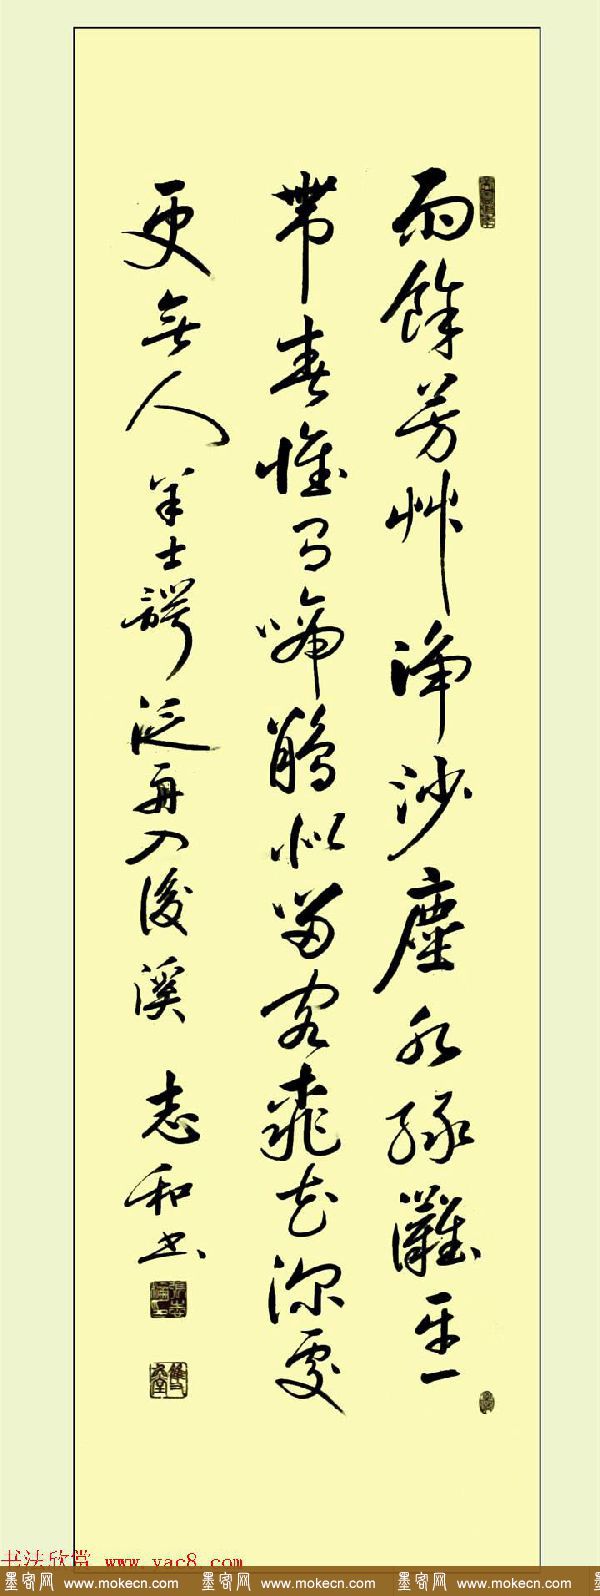 雨餘芳艸淨沙塵水綠灘平一
帶春惟有啼鵑似留客桃花深處
更無人 羊士諤泛舟入後溪 志和書
书法欣赏 www.yac8.com
墨客网 www.mokecn.com 墨客网 www.mokecn.com 墨客网 www.mokecn.com